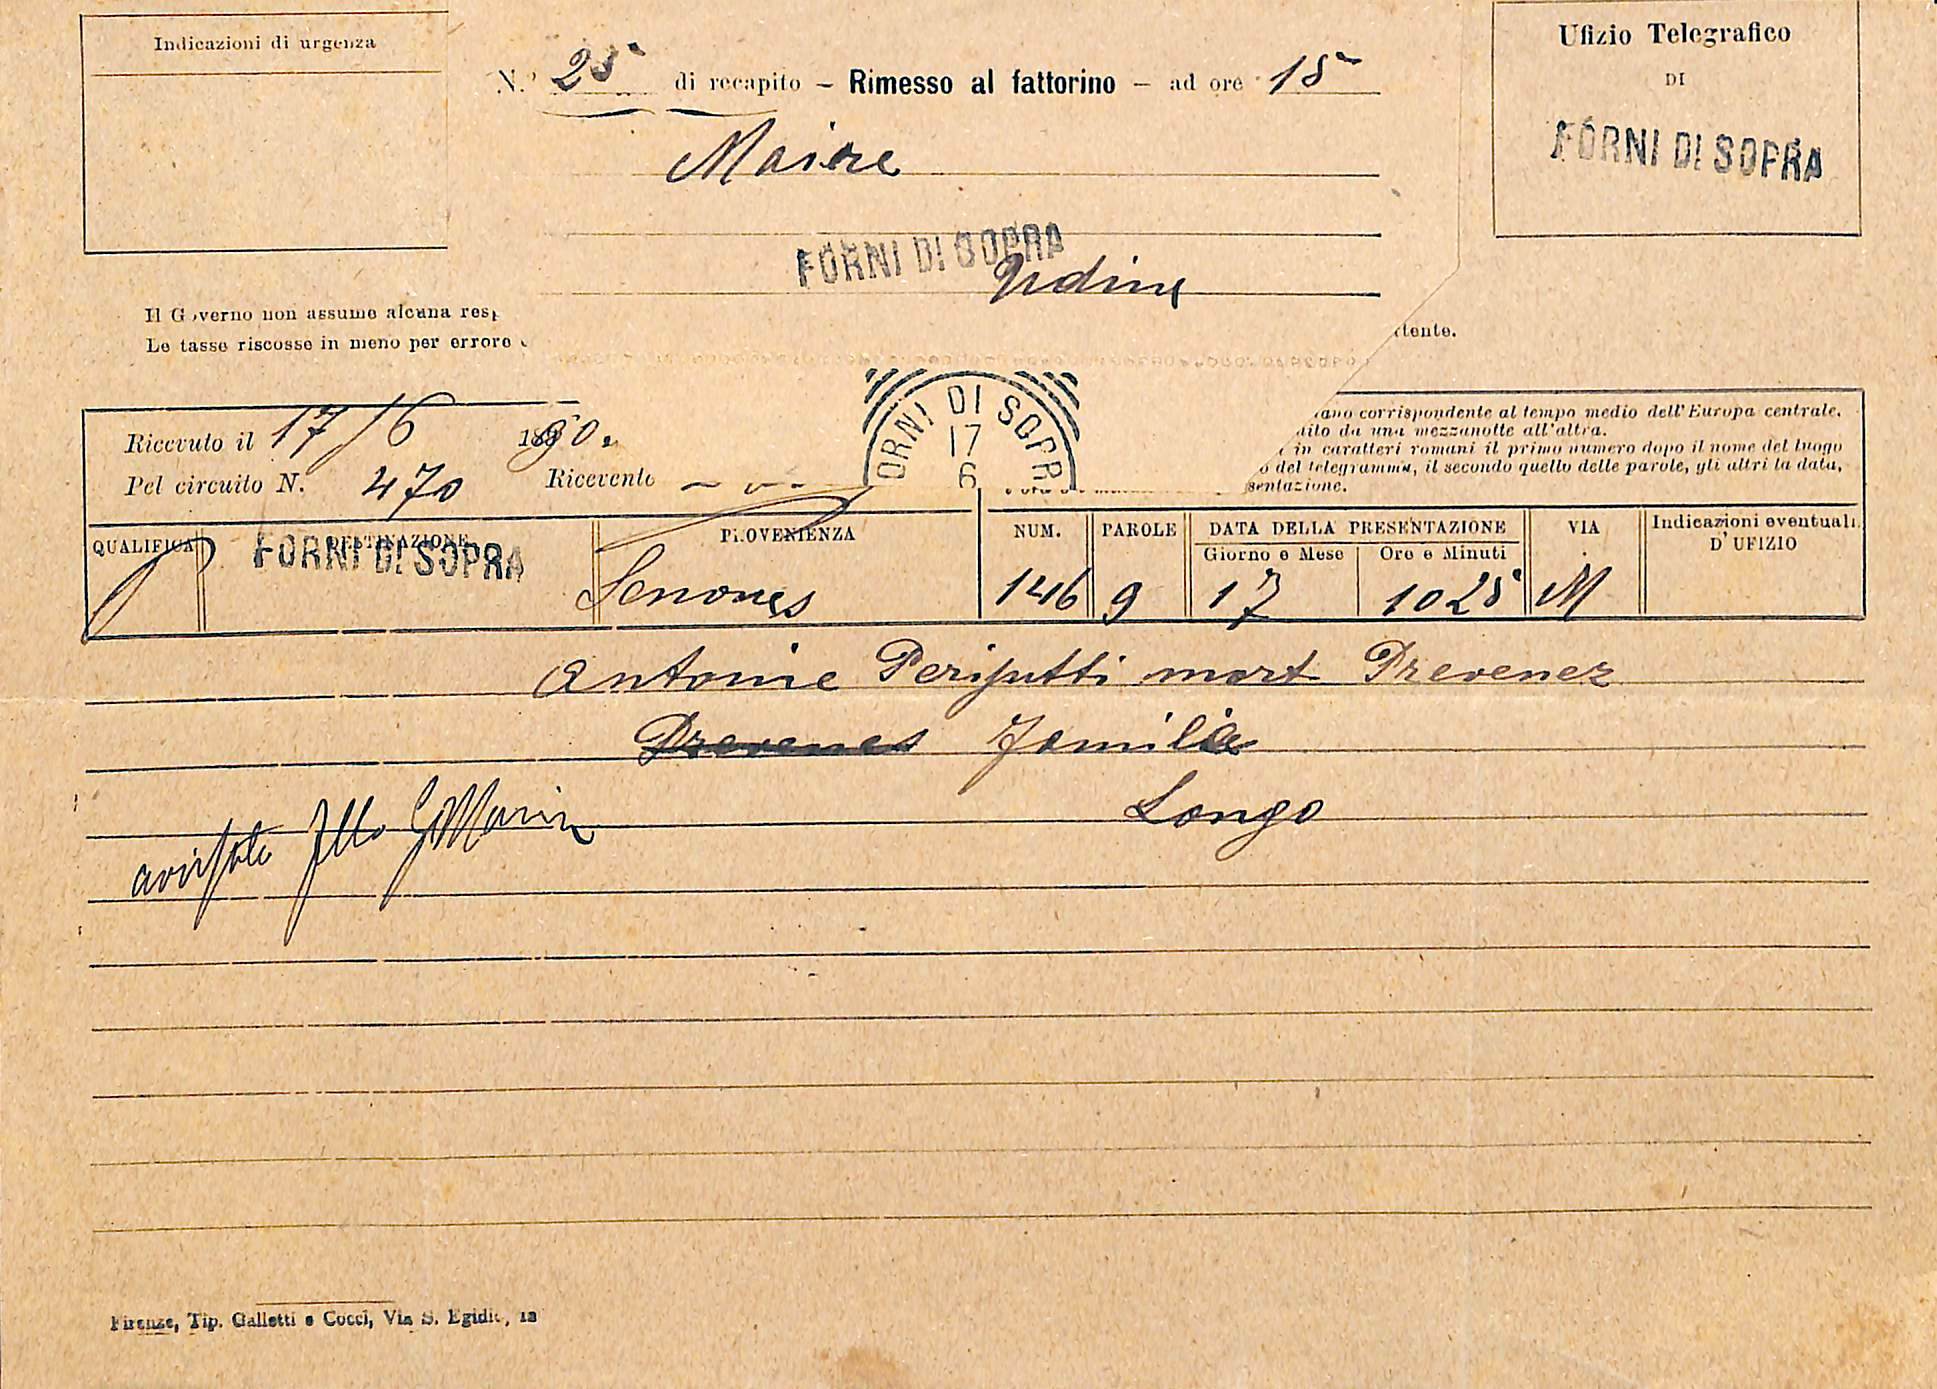 Indicazioni di urgenza
N.° 25 di recapito — Rimesso al fattorino — ad ore 15
Ufizio Telegrafico
DI
FORNI DI SOPRA
Maire
FORNI DI SOPRA
Udine
Il Governo non assume alcuna resp
Le tasse riscosse in meno per errore
ttente.
FORNI DI SOPR
17
6
Ricevuto il 17/6 1890.
Pel circuito N. 470 Ricevente
ano corrispondente al tempo medio dell'Europa centrale.
uito da una mezzanotte all'altra.
in caratteri romani il primo numero dopo il nome del luogo
o del telegramma, il secondo quello delle parole, gli altri la data,
sentazione.
QUALIFICA DESTINAZIONE PROVENIENZA NUM. PAROLE DATA DELLA PRESENTAZIONE VIA Indicazioni eventuali
D'UFIZIO
Giorno e Mese Ore e Minuti
FORNI DI SOPRA Senones 146 9 17 1025 M
Antonie Perisutti mort Prevenez
Prevenes familie
Longo
avvisato
Firenze, Tip. Galletti e Cocci, Via S. Egidio, 12